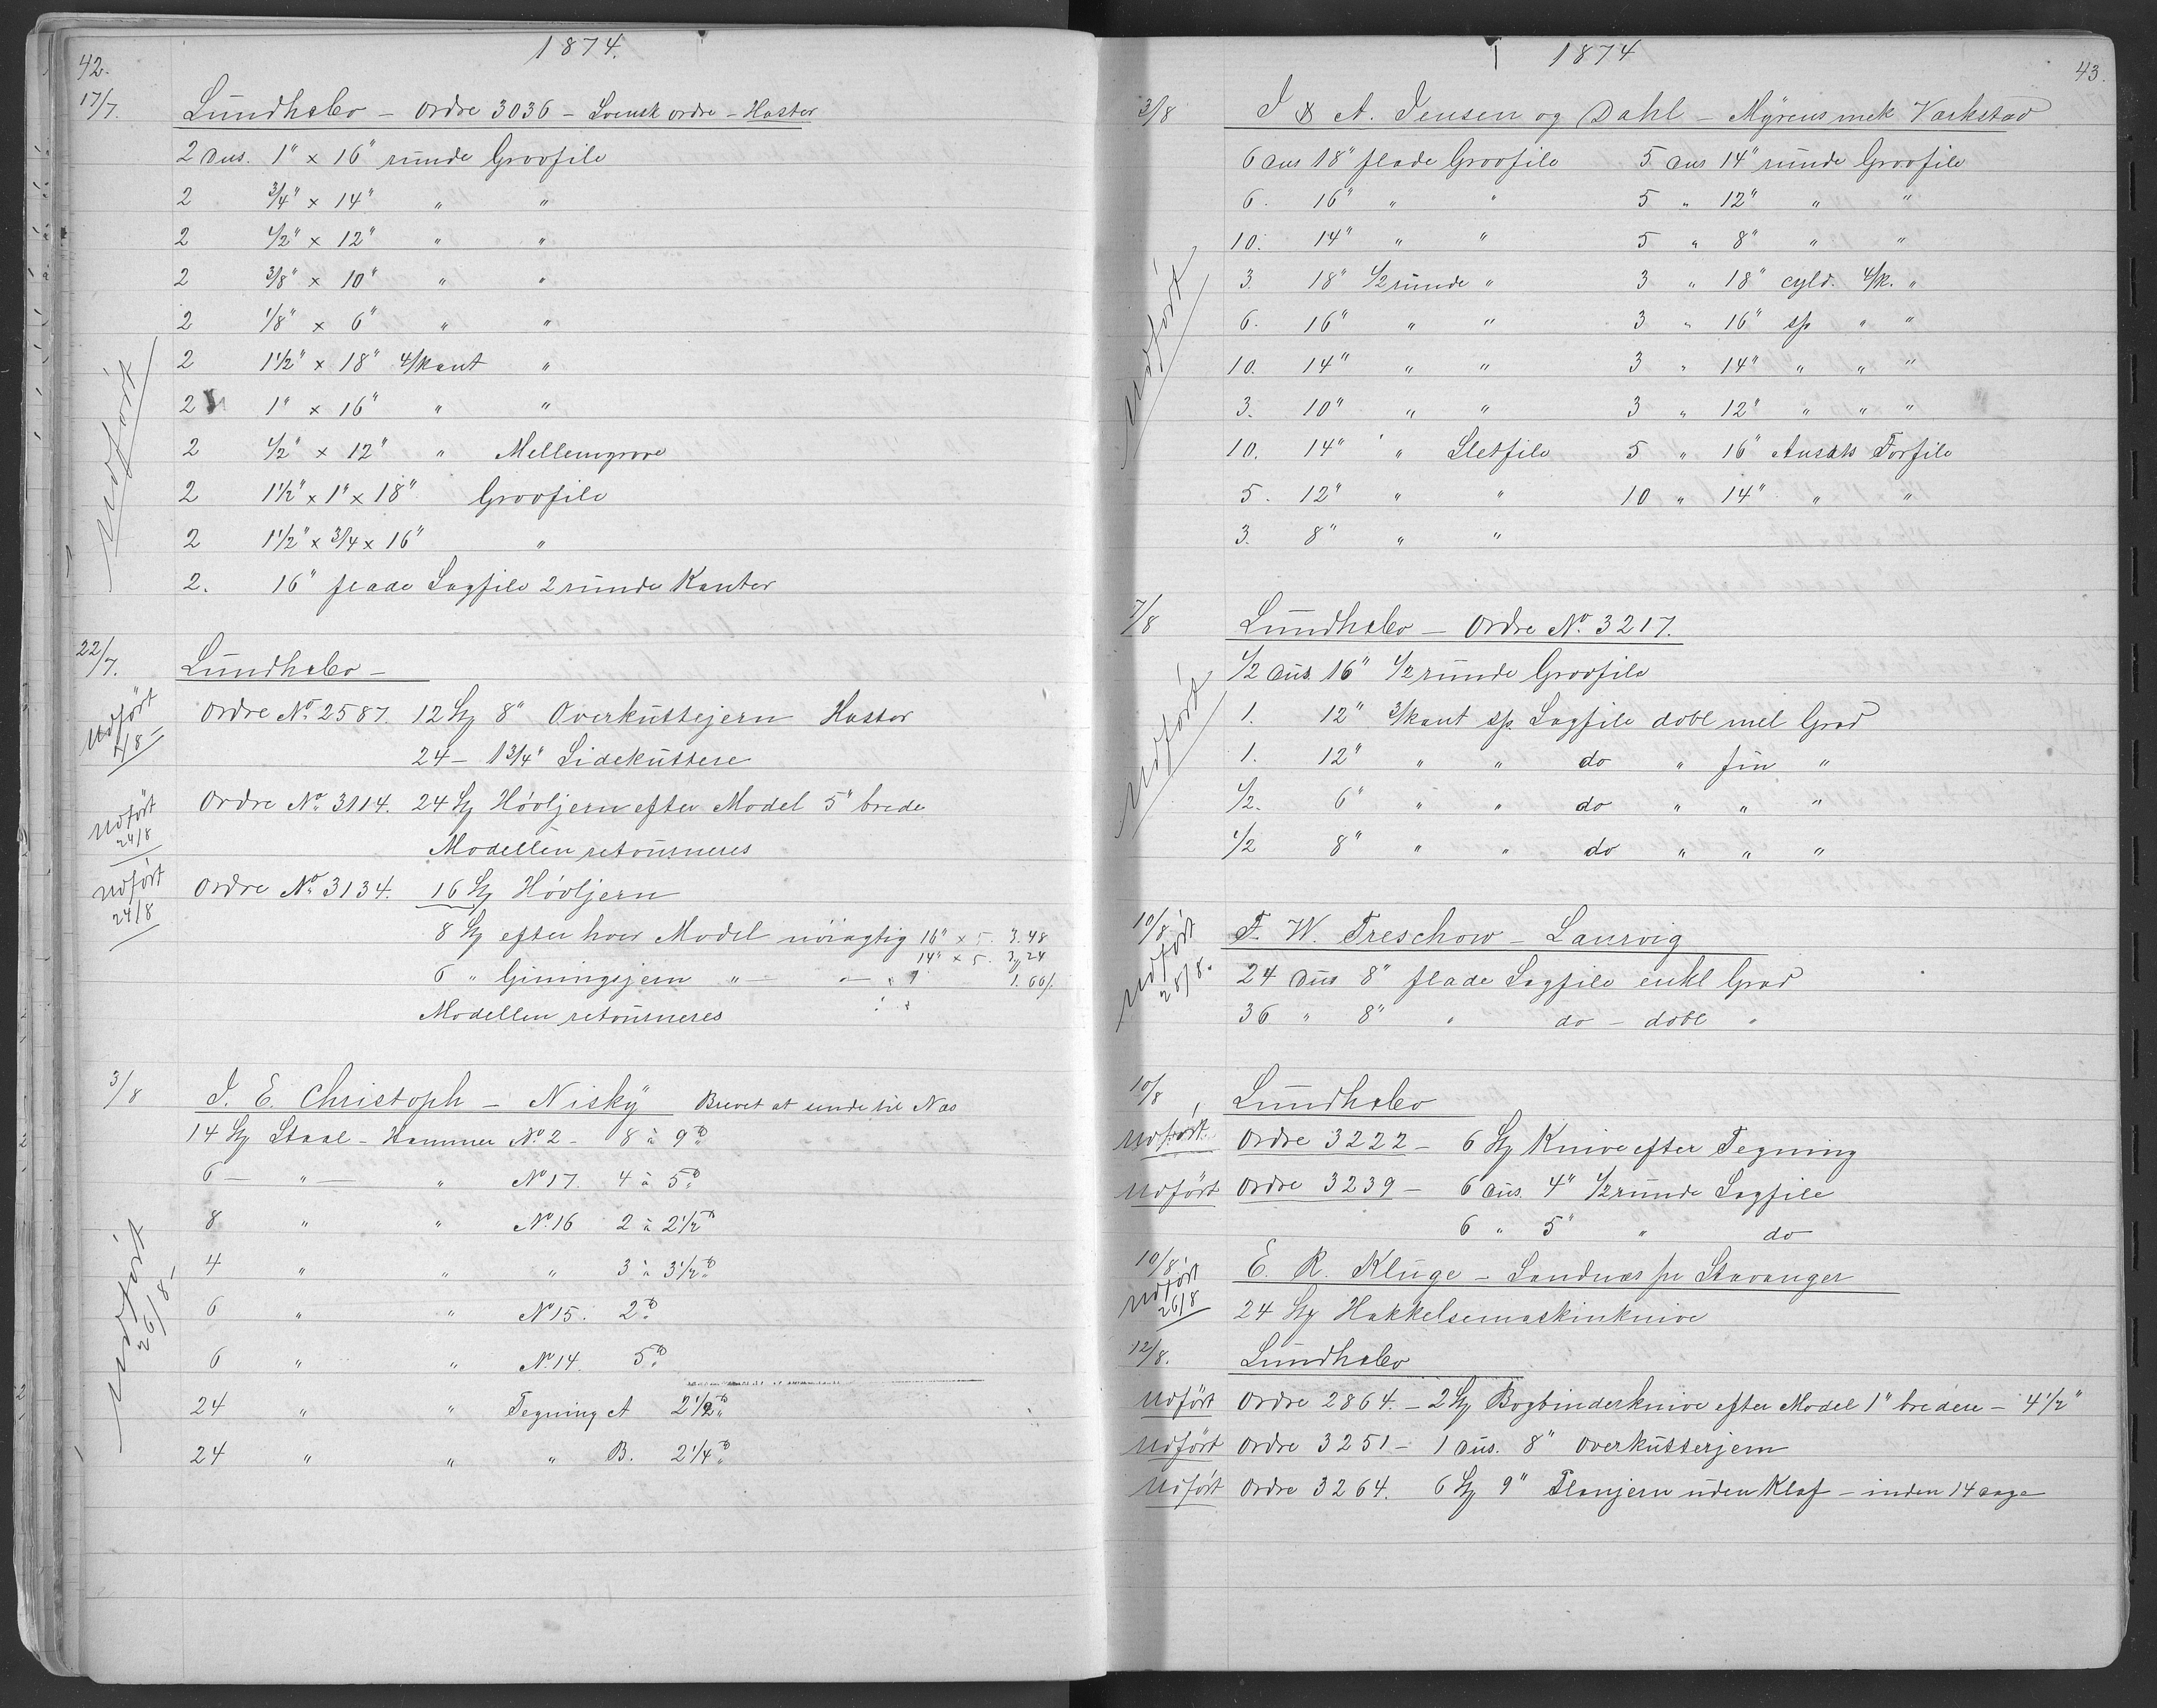 42.
1874.
17/7. Lundhebo – Ordre 3036 – Svensk ordre – Haster
2 Dus. 1" x 16" runde Grovfile
2 3/4" x 14" " "
2 1/2" x 12" " "
2 3/8" x 10" " "
2 1/8" x 6" " "
2 1 1/2" x 18" 4/kant "
2 1" x 16" " "
2 1/2" x 12" " Mellemgrove
2 1 1/2" x 1" x 18" Grovfile
2 1 1/2" x 3/4 x 16" "
2. 16" flade Sagfile 2 runde Kanter
Udført
22/7. Lundhebo –
Udført 4/8 – Ordre No. 2587. 12 St 8" Overkuttejern Haster
24 – 1 3/4" Sidekuttere
Udført 24/8 Ordre No. 3114. 24 St Høvljern efter Model 5" brede
Modellen retourneres
Udført 24/8 Ordre No. 3134. 16 St Høvljern
8 St efter hver Model nöiagtig 16" x 5. 3.48
14" x 5. 3 24
6 " Giningsjern " – " – 1.60
Modellen retourneres
3/8 I. E. Christoph – Nisky Brevet at sende til Næs
14 St Staal – Hammer No. 2 – 8 à 9 ℔
6 – " – " No 17. 4 à 5 ℔
8 " " No. 16 2 à 2 1/2 ℔
4 " " " 3 à 3 1/2 ℔
6 " " No 15. 2 ℔
6 " " No. 14. 5 ℔
24 " " Tegning A 2 1/2 ℔
24 " " " B. 2 1/4 ℔
Udført 26/8 –
1874
43.
3/8 I & A. Jensen og Dahl – Myrens mek Værkstad
6 Dus 18" flade Grovfile 5 Dus 14" runde Grovfile
6. 16" " " 5 " 12" " "
10. 14" " " 5 " 8" " "
3. 18" 1/2 runde " 3 " 18" cyld. 4/k. "
6. 16" " " 3 " 16" sp " "
10. 14" " " 3 " 14" " " "
3. 10" " " 3 " 12" " " "
10. 14" " Sletfile 5 " 16" Ansats Forfile
5. 12" " " 10 " 14" " "
3. 8" " "
Udført
7/8 Lundhebo – Ordre No. 3217.
1/2 Dus. 16" 1/2 runde Grovfile
1. 12" 3/kant sp. Sagfile dobl mel Grad
1. 12" " " do " fin "
1/2. 6" " " do " " "
1/2 8" " " do " " "
Udført
10/8 F. W. Treschow – Laurvig
24 Dus 8" flade Sagfile enkl Grad
36 " 8" " do – dobl "
Udført 28/8.
10/8 Lundhebo
Udført Ordre 3222 – 6 St Knive efter Tegning
Udført Ordre 3239 – 6 Dus. 4" 1/2 runde Sagfile
6 " 5" " do
10/8 E. R. Kluge – Sandnæs pr Stavanger
Udført 26/8 24 St Hakkelsemaskinknive
12/8. Lundhebo
Udført Ordre 2864. – 2 St Bogbinderknive efter Model 1" bredere – 4 1/2"
Udført Ordre 3251 – 1 Dus. 8" Overkutterjern
Udført Ordre 3264. 6 St 9" Planjern uden Klaf – inden 14 dage